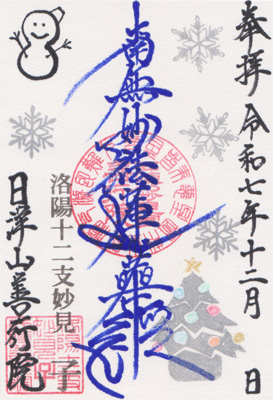 奉拝 令和七年十二月 日
南無妙法蓮華経
洛陽十二支妙見 子
日洋山善行院